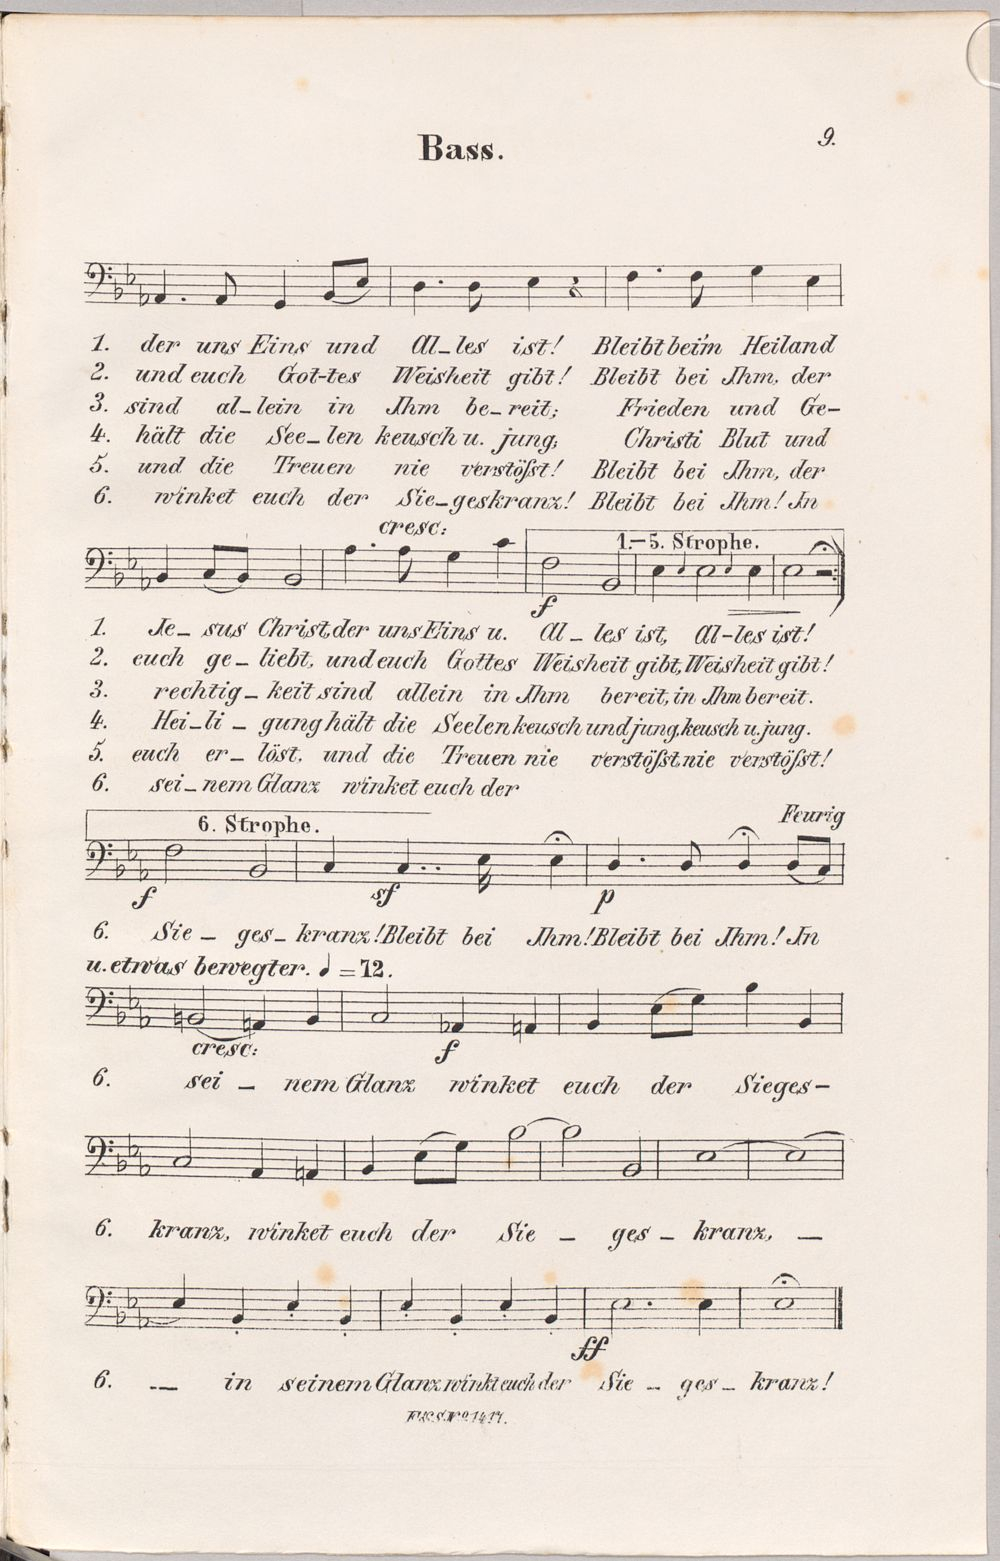 Bass.
9.
1. der uns Eins und Al_les ist! Bleibt bei'm Heiland
2. und euch Got-tes Weisheit gibt! Bleibt bei Ihm, der
3. sind al_lein in Ihm be_reit; Frieden und Ge-
4. hält die See_len keusch u. jung; Christi Blut und
5. und die Treuen nie verstößt! Bleibt bei Ihm, der
6. winket euch der Sie_geskranz! Bleibt bei Ihm! In
cresc:
1.-5. Strophe.
f
1. Je_ sus Christ, der uns Eins u. Al_ les ist, Al-les ist!
2. euch ge_ liebt, und euch Gottes Weisheit gibt, Weisheit gibt!
3. rechtig_ keit sind allein in Ihm bereit, in Ihm bereit.
4. Hei_li_ gung hält die Seelen keusch und jung, keusch u. jung.
5. euch er_ löst, und die Treuen nie verstößt, nie verstößt!
6. sei_nem Glanz winket euch der
Feurig
6. Strophe.
f sf p
6. Sie_ ges_ kranz! Bleibt bei Ihm! Bleibt bei Ihm! In
u. etwas bewegter. ♩=72.
cresc: f
6. sei_ nem Glanz winket euch der Sieges-
6. kranz, winket euch der Sie_ ges_ kranz, _
ff
6. _ in seinem Glanz winkt euch der Sie_ ges_ kranz!